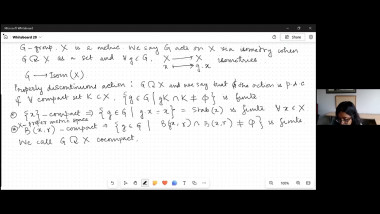 Whiteboard 20
G-group. X is a metric. We say G acts on X via isometry when
G ↻ X as a set and ∀ g∈G, X → X isometries
x ↦ g.x
G → Isom (X)
Properly discontinuous action: G ↻ X and we say that the action is p.d.c
if ∀ compact set K ⊂ X, { g∈G | gK ∩ K ≠ ϕ } is finite
{x} - compact ⇒ { g∈G | gx = x } = Stab(x) is finite ∀ x∈X
X-proper metric space
B(x, r) - compact ⇒ { g∈G | B(gx, r) ∩ B(x, r) ≠ ϕ } is finite
We call G ↻ X cocompact
100%